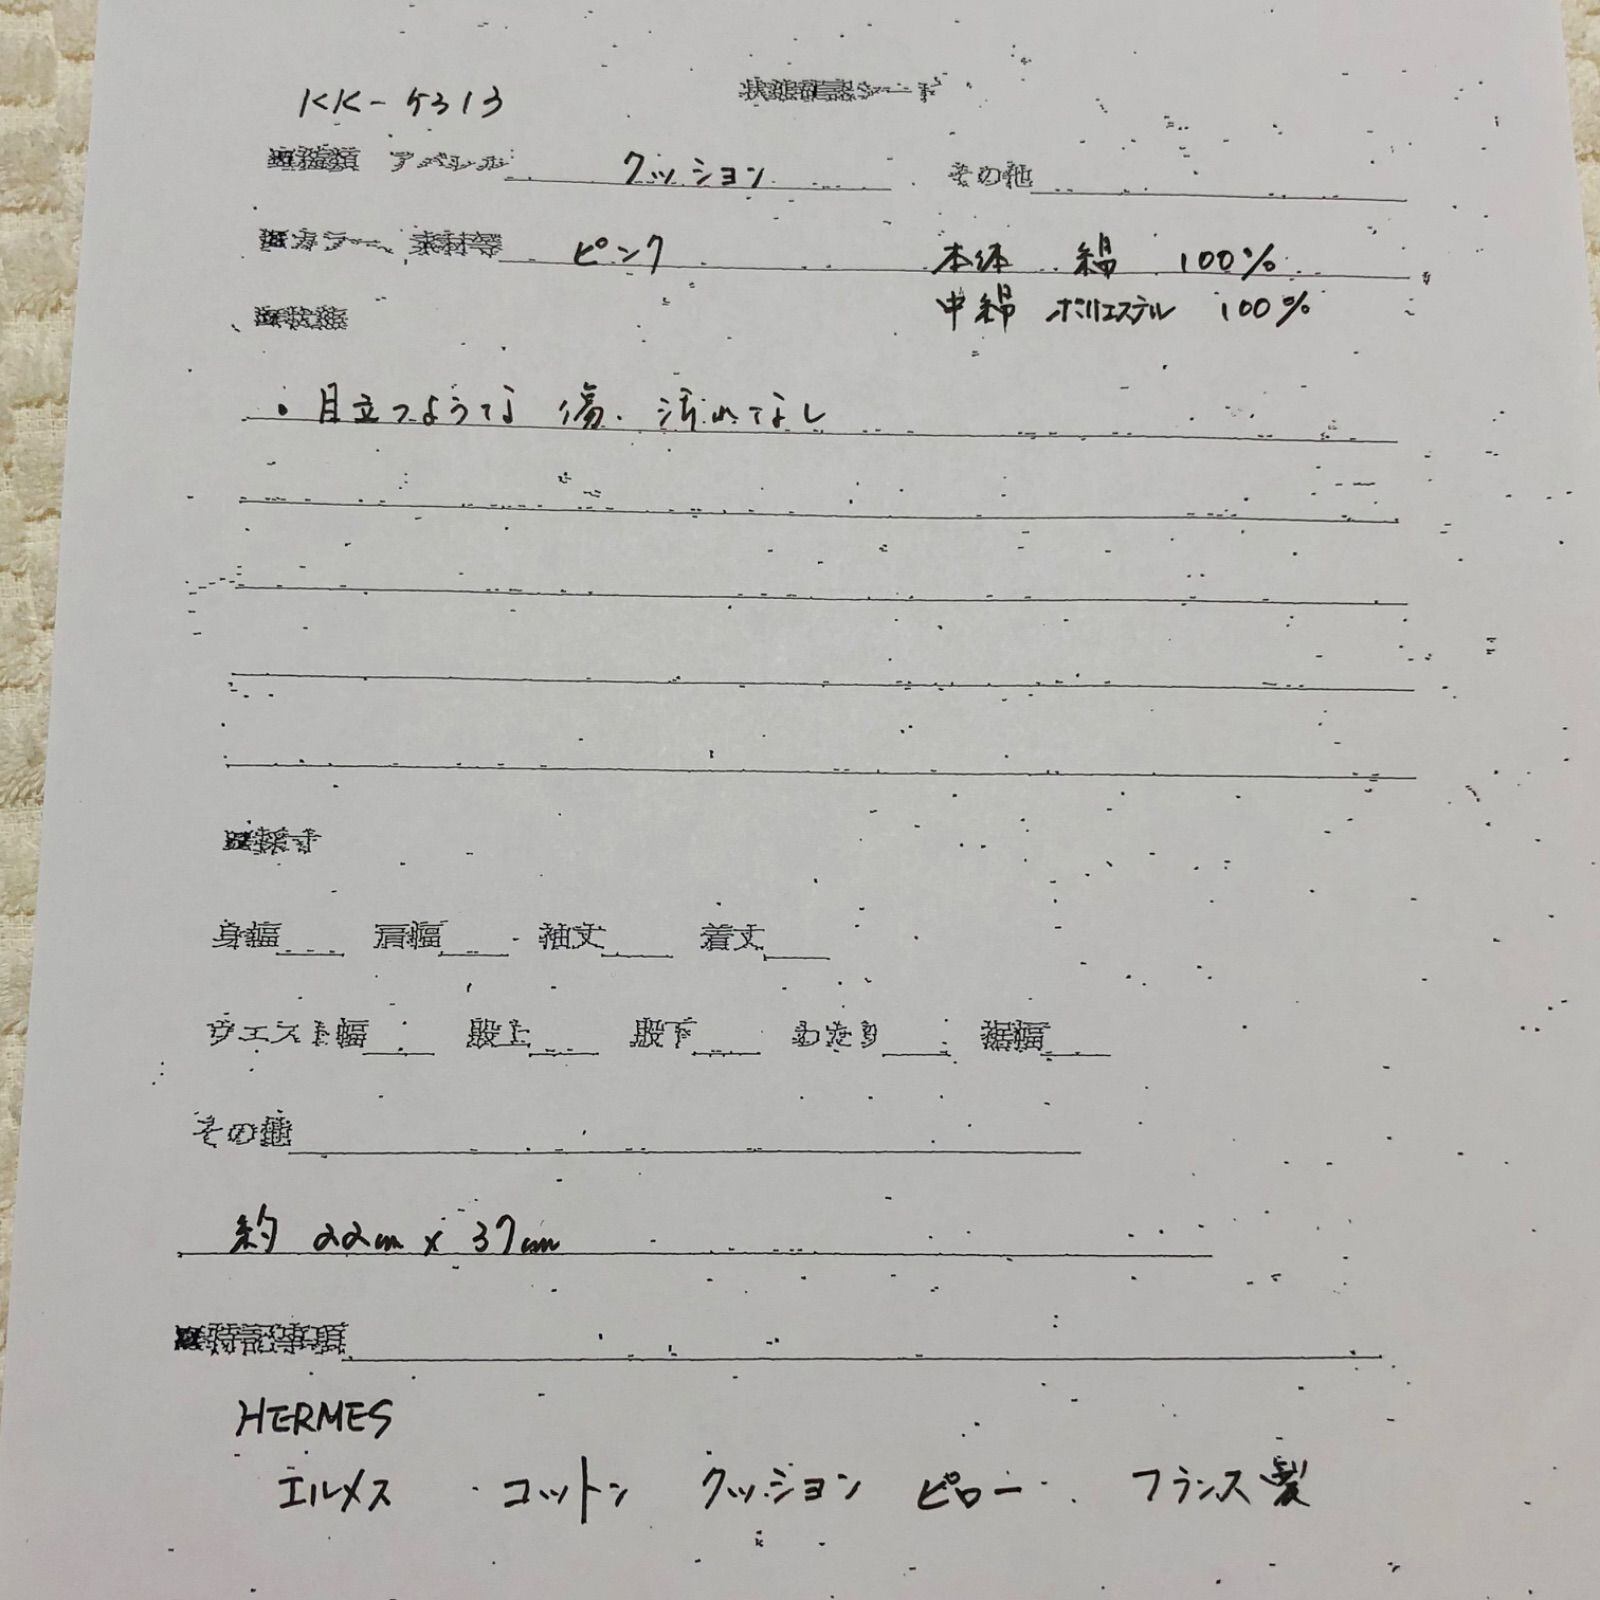 KK-5313
状態確認シート
■種類 アパレル クッション その他
■カラー、素材等 ピンク 本体 綿 100%
中綿 ポリエステル 100%
■状態
・目立つような 傷、汚れなし
■採寸
身幅 肩幅 袖丈 着丈
ウエスト幅 股上 股下 わたり 裾幅
その他
約 22cm x 37cm
■特記事項
HERMES
エルメス コットン クッション ピロー フランス製